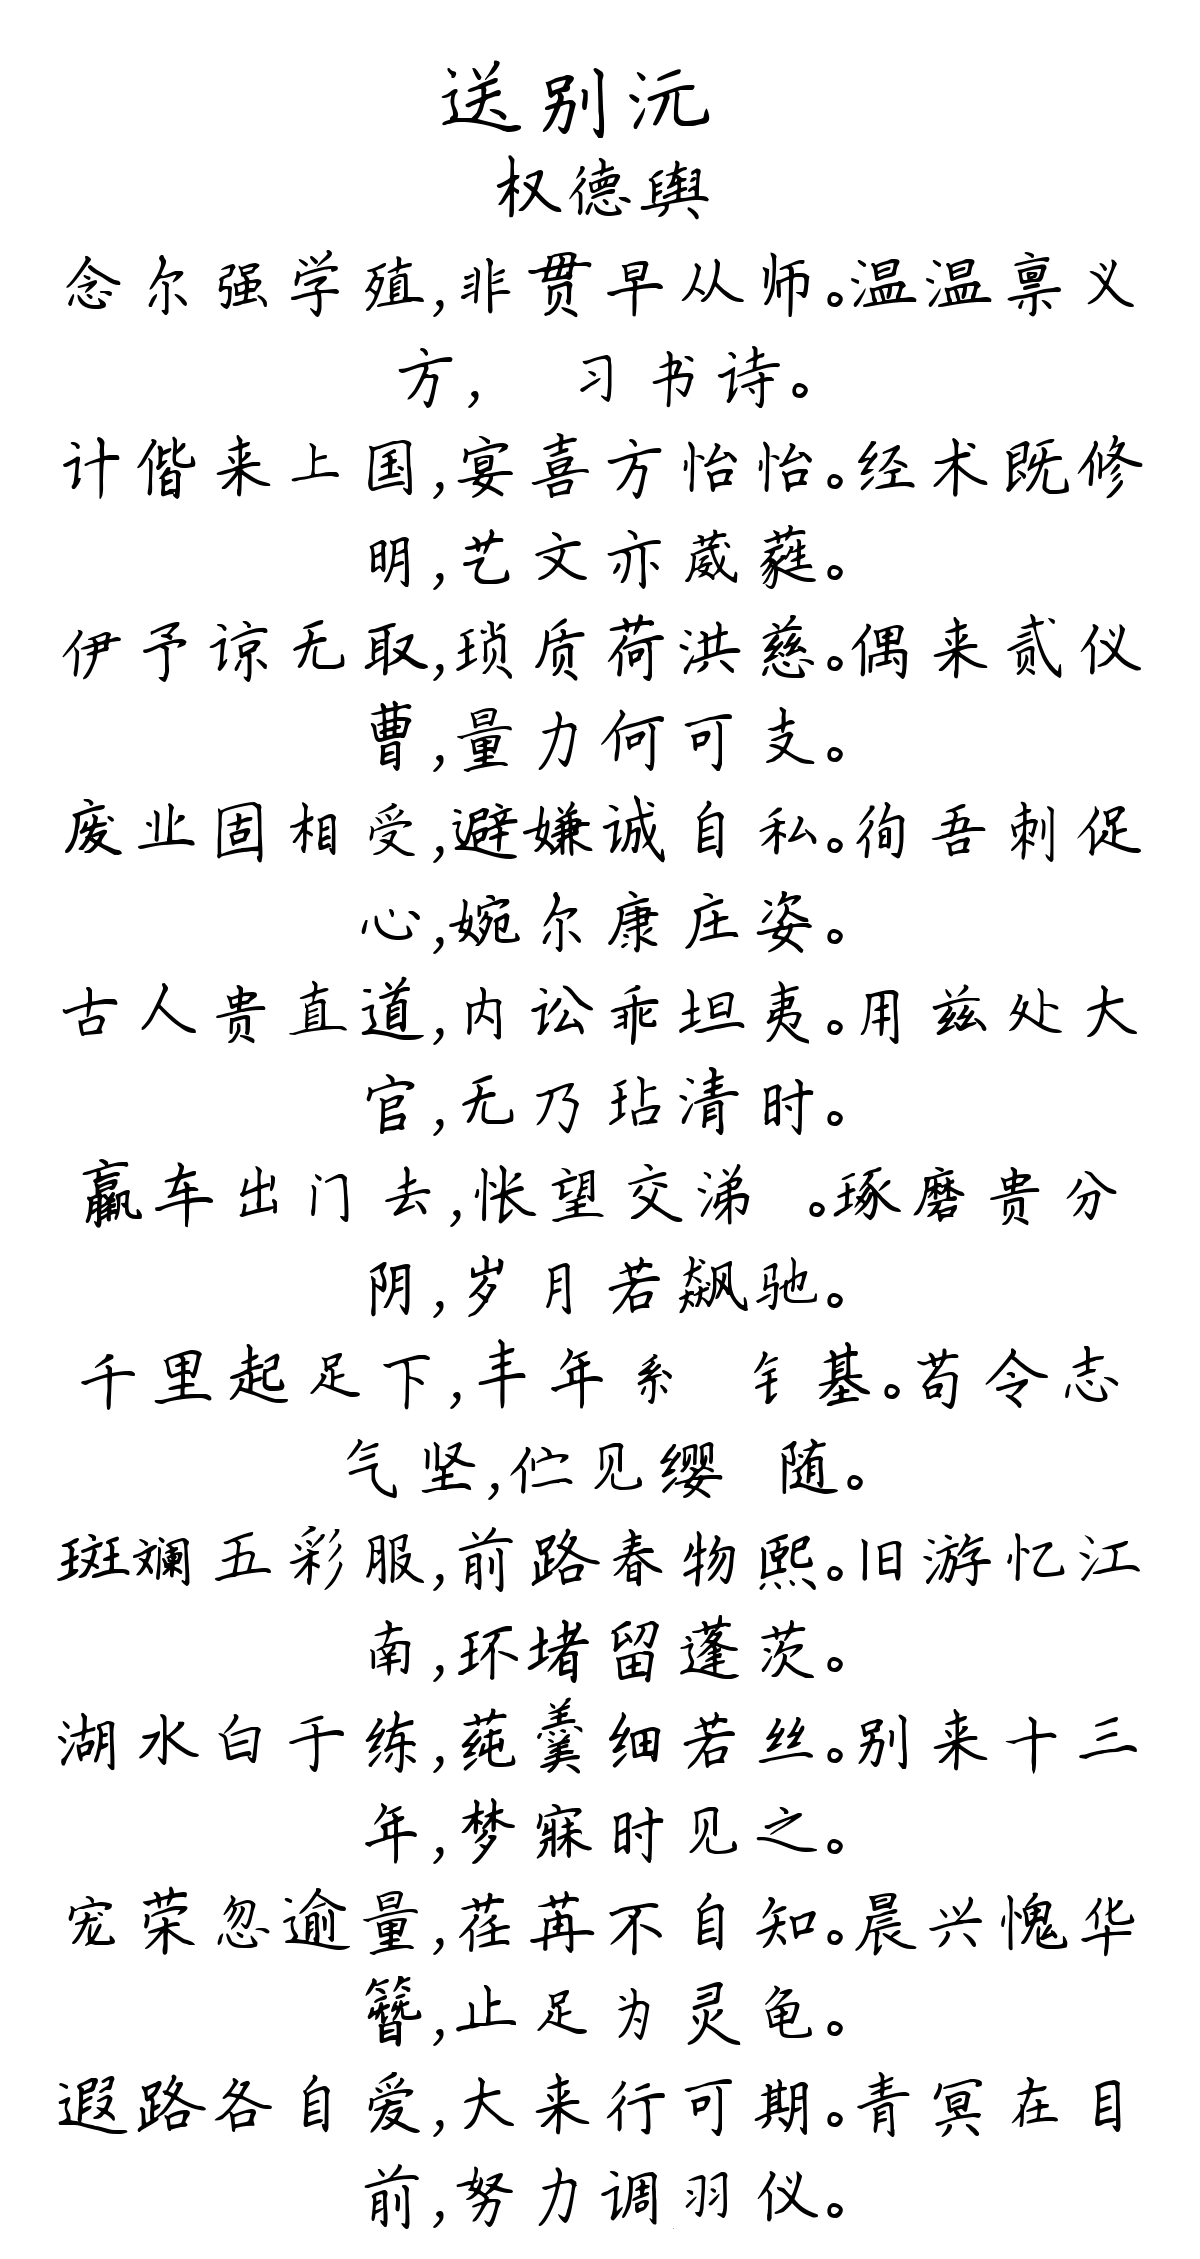 送别沅
权德舆
念尔强学殖,非贯早从师。温温禀义
方, 习书诗。
计偕来上国,宴喜方怡怡。经术既修
明,艺文亦葳蕤。
伊予谅无取,琐质荷洪慈。偶来贰仪
曹,量力何可支。
废业固相受,避嫌诚自私。徇吾刺促
心,婉尔康庄姿。
古人贵直道,内讼乖坦夷。用兹处大
官,无乃玷清时。
羸车出门去,怅望交涕 。琢磨贵分
阴,岁月若飙驰。
千里起足下,丰年系 钅基。苟令志
气坚,伫见缨 随。
斑斓五彩服,前路春物熙。旧游忆江
南,环堵留蓬茨。
湖水白于练,莼羹细若丝。别来十三
年,梦寐时见之。
宠荣忽逾量,荏苒不自知。晨兴愧华
簪,止足为灵龟。
遐路各自爱,大来行可期。青冥在目
前,努力调羽仪。